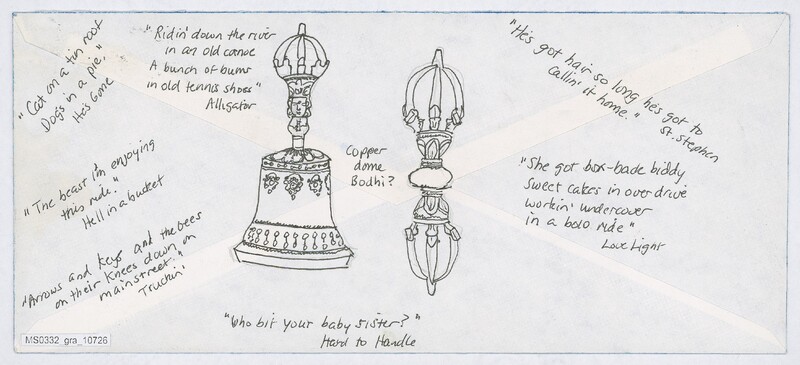 "Cat on a tin roof
Dogs in a pie,"
He's Gone
"Ridin' down the river
in an old canoe
A bunch of bums
in old tennis shoes"
Alligator
"He's got hair so long he's got to
callin' it home."
St. Stephen
"The beast I'm enjoying
this ride."
Hell in a bucket
Copper
dome
Bodhi?
"She got box-bade biddy
sweet cakes in over drive
workin' undercover
in a bolo ride"
Love Light
"Arrows and keys and the bees
on their knees down on
mainstreet."
Truckin'
"Who bit your baby sister?"
Hard to Handle
MS0332_gra_10726